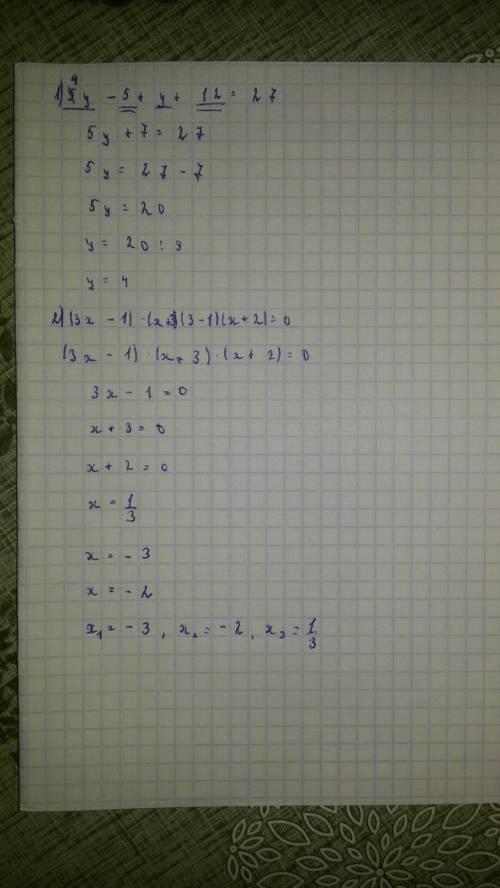 1) 4y - 5 + y + 12 = 27
5y + 7 = 27
5y = 27 - 7
5y = 20
y = 20 :
y = 4
2) (3x - 1) · (x+3)(3-1)(x+2) = 0
(3x - 1) · (x + 3) · (x + 2) = 0
3x - 1 = 0
x + 3 = 0
x + 2 = 0
x = 1/3
x = - 3
x = - 2
x₁ = - 3 , x₂ = - 2 , x₃ = 1/3